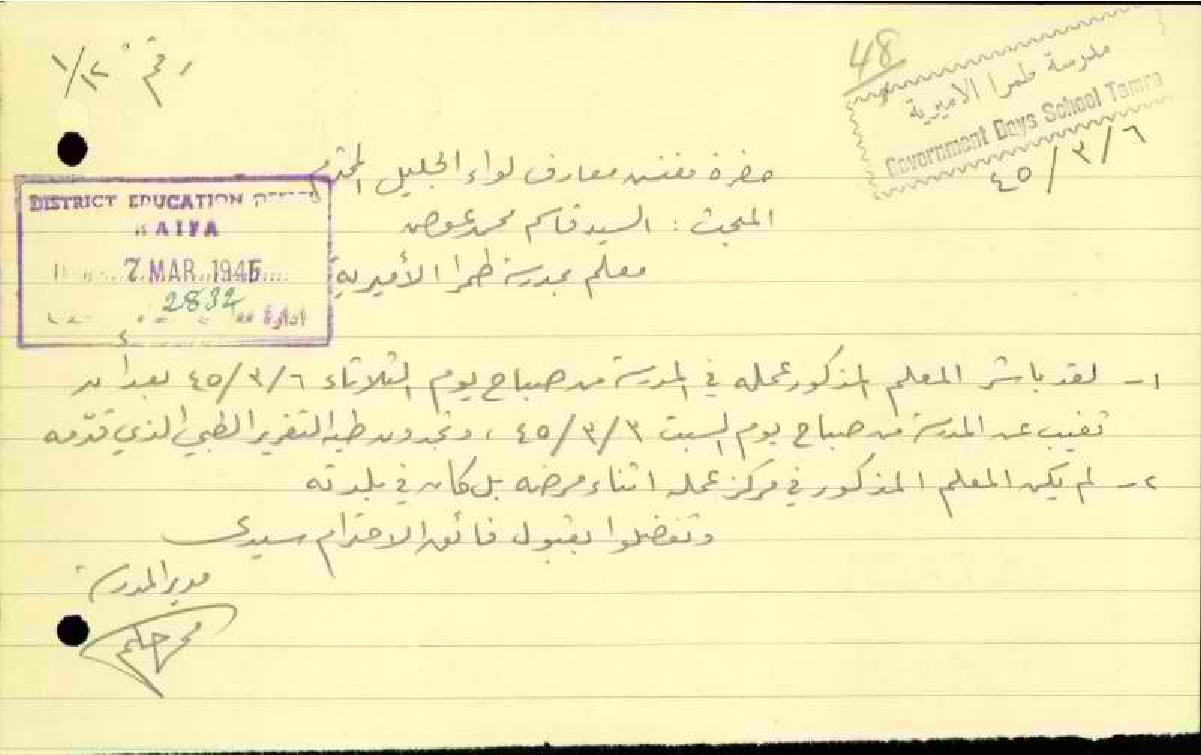 رقم ١/١٢
48
مدرسة طمرا الاميرية
Government Boys School Tamra
٤٥/٣/٦
حضرة مفتش معارف لواء الجليل المحترم
DISTRICT EDUCATION
HAIFA
7 MAR 1945
2832
ادارة
المبحث : السيد قاسم محمد عوض
معلم بمدرسة طمرا الأميرية
١- لقد باشر المعلم المذكور عمله في المدرسة من صباح يوم الثلاثاء ٤٥/٣/٦ بعد أن
تغيب عن المدرسة من صباح يوم السبت ٤٥/٣/٣ ، وتجدون طيه التقرير الطبي الذي قدّمه
٢- لم يكن المعلم المذكور في مركز عمله اثناء مرضه بل كان في بلدته
وتفضلوا بقبول فائق الاحترام سيدي
مدير المدرسة